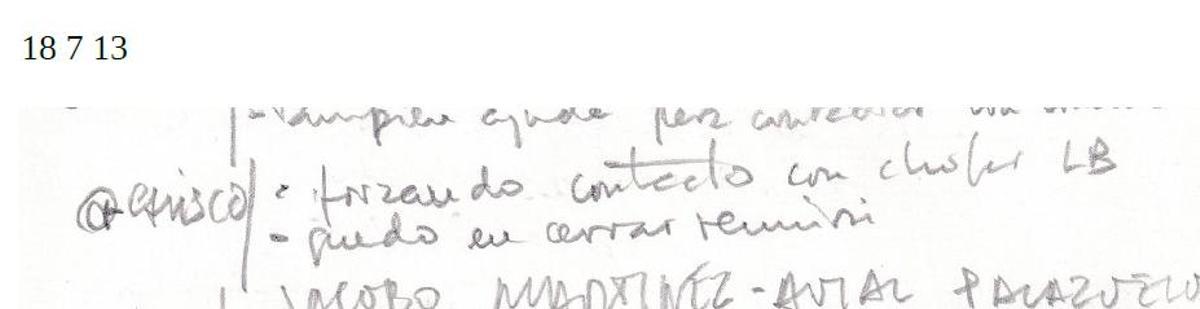 18 7 13
- también ayuda para contactar con
- forzando contacto con chofer LB
- quedo en cerrar reunión
JACOBO MARTINEZ-AVIAL PALAZUELO